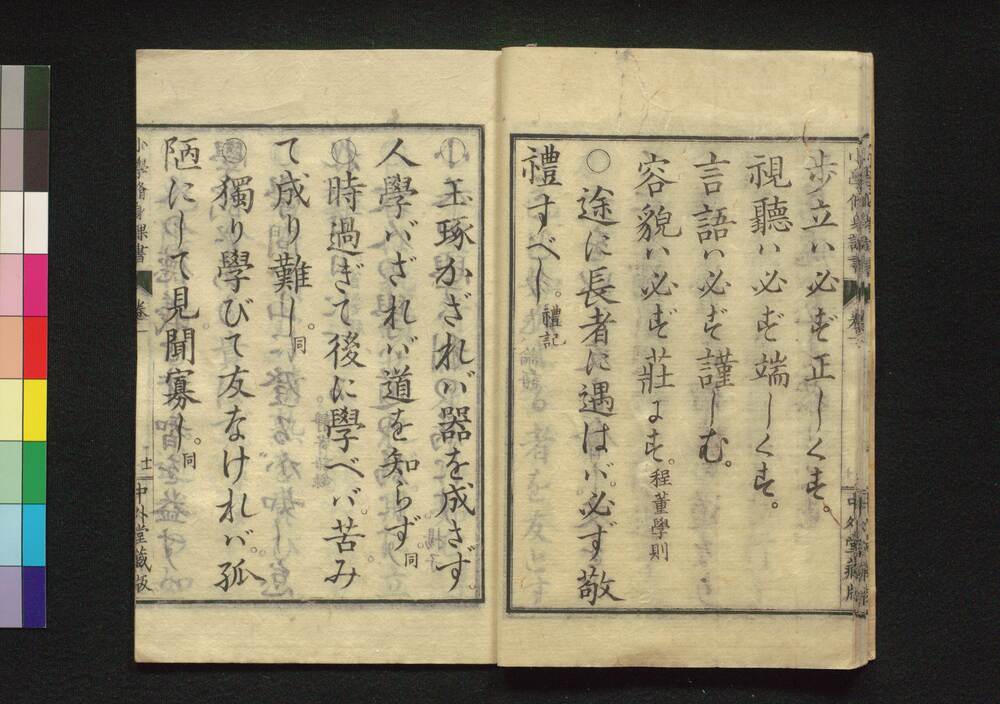 歩立ハ必ず正しくす。
視聽ハ必ず端しくす。
言語ハ必ず謹しむ。
容貌ハ必ず莊にす。程董學則
○途に長者に遇はバ必ず敬
禮すべし。禮記
中外堂藏版
玉琢かざれバ器を成さず。
人學バざれバ道を知らず。同
時過ぎて後に學べバ。苦み
て成り難し。同
獨り學びて友なけれバ。孤
陋にして見聞寡し。同
小學脩身課書
卷一
十一
中外堂藏板